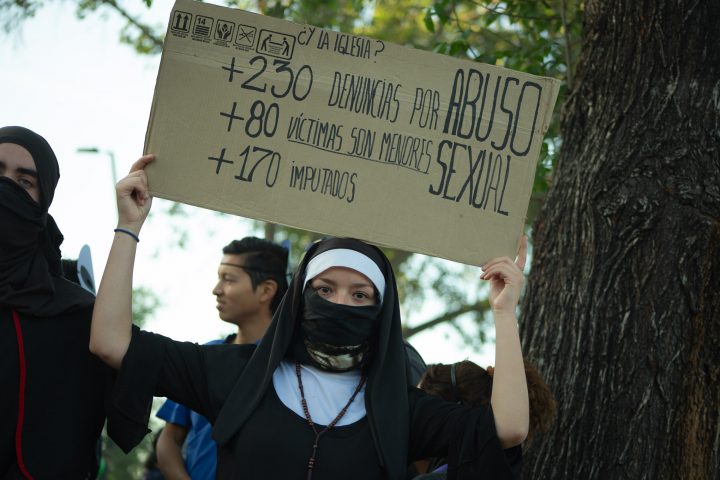 14
¿Y LA IGLESIA?
+230 DENUNCIAS POR ABUSO
+80 VÍCTIMAS SON MENORES SEXUAL
+170 IMPUTADOS